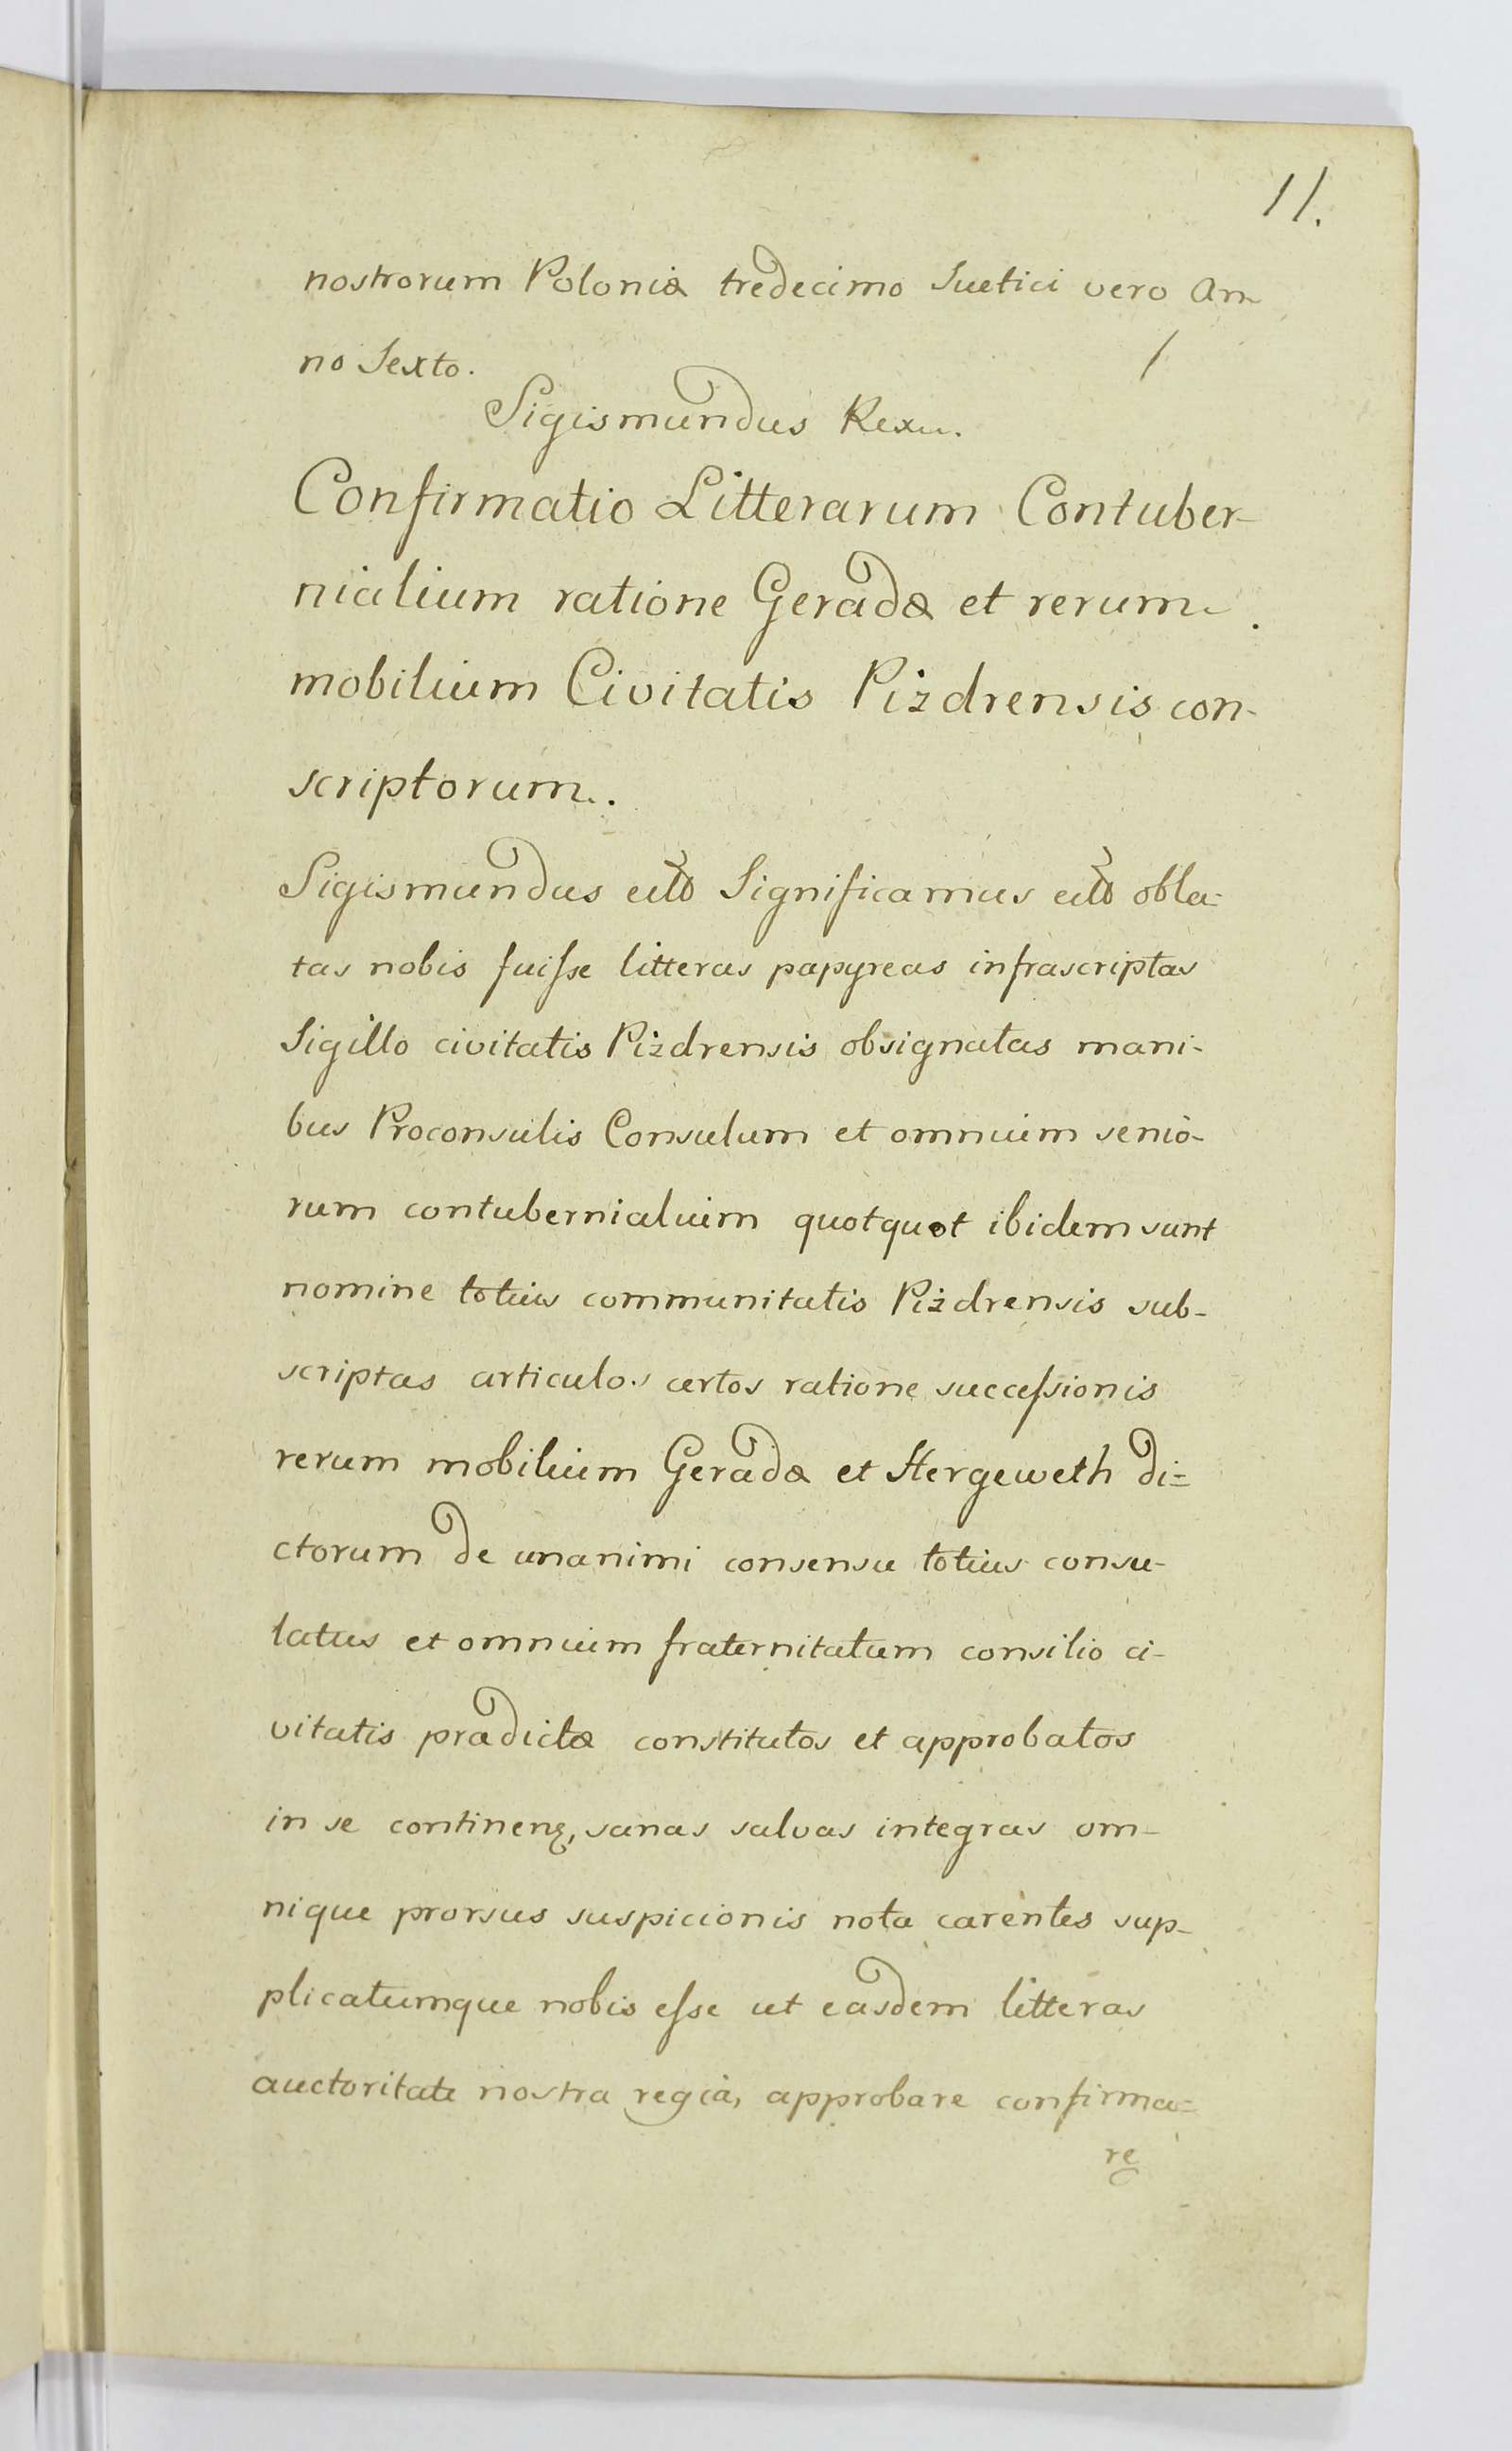 11.
nostrorum Poloniæ tredecimo Suetici vero An
no Sexto.
Sigismundus Rex.
Confirmatio Litterarum Contuber-
nialium ratione Geradæ et rerum
mobilium Civitatis Pizdrensis con-
scriptorum.
Sigismundus Significamus obla-
tas nobis fuisse litteras papyreas infrascriptas
Sigillo civitatis Pizdrensis obsignatas mani-
bus Proconsulis Consulum et omnium senio-
rum contubernialium quotquot ibidem sunt
nomine totius communitatis Piżdrensis sub-
scriptas articulos certos ratione successionis
rerum mobilium Geradæ et Hergeweth di=
ctorum de unanimi consensu totius consu-
latus et omnium fraternitatum consilio ci-
vitatis prædictæ constitutos et approbatos
in se continen, sanas salvas integras om-
nique prorsus suspicionis nota carentes sup-
plicatumque nobis esse ut easdem litteras
auctoritate nostra regia, approbare confirma=
re